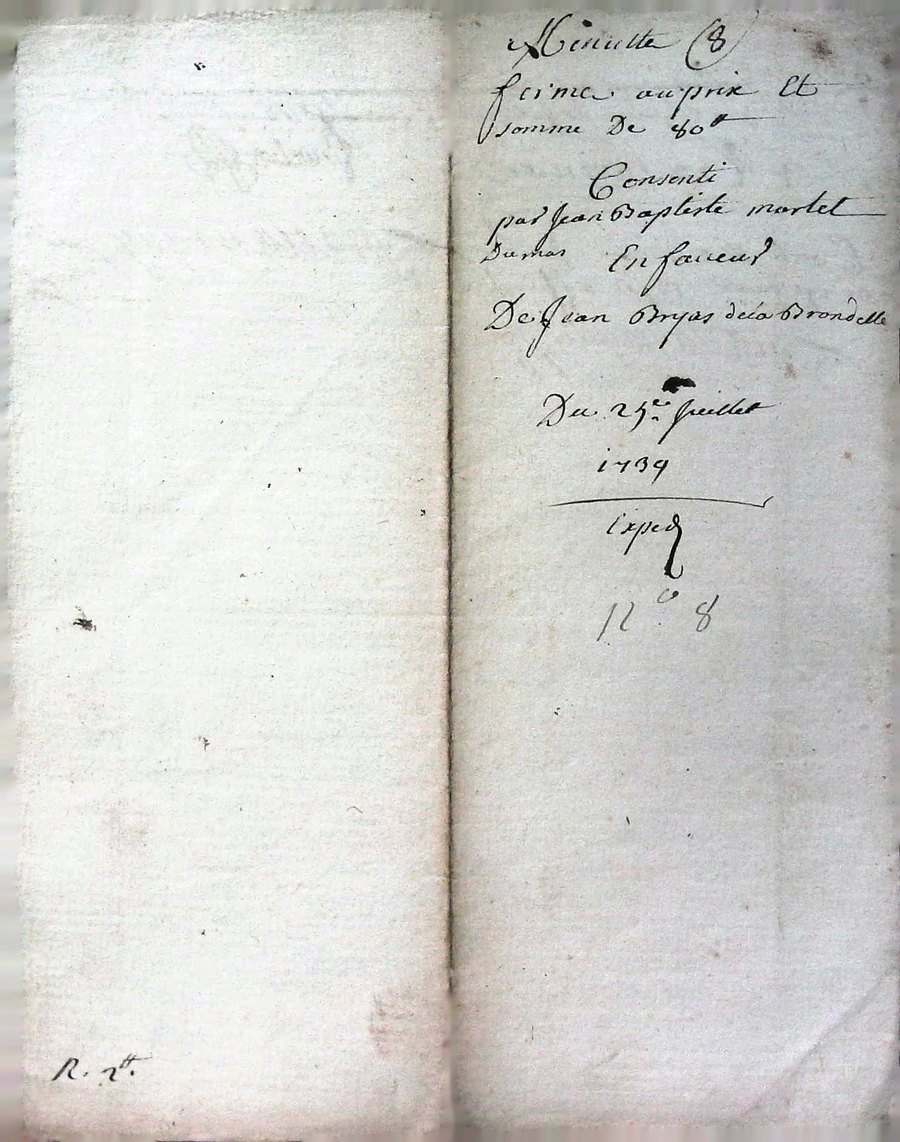 Minutte (8)
ferme au prix Et
somme De 80tt
Consenti
par Jean Baptiste martel
Dumas En faveur
De Jean Bryas dela Brondelle
Du 25e Juillet
1739
Exped
N.o 8
R. 2tt.